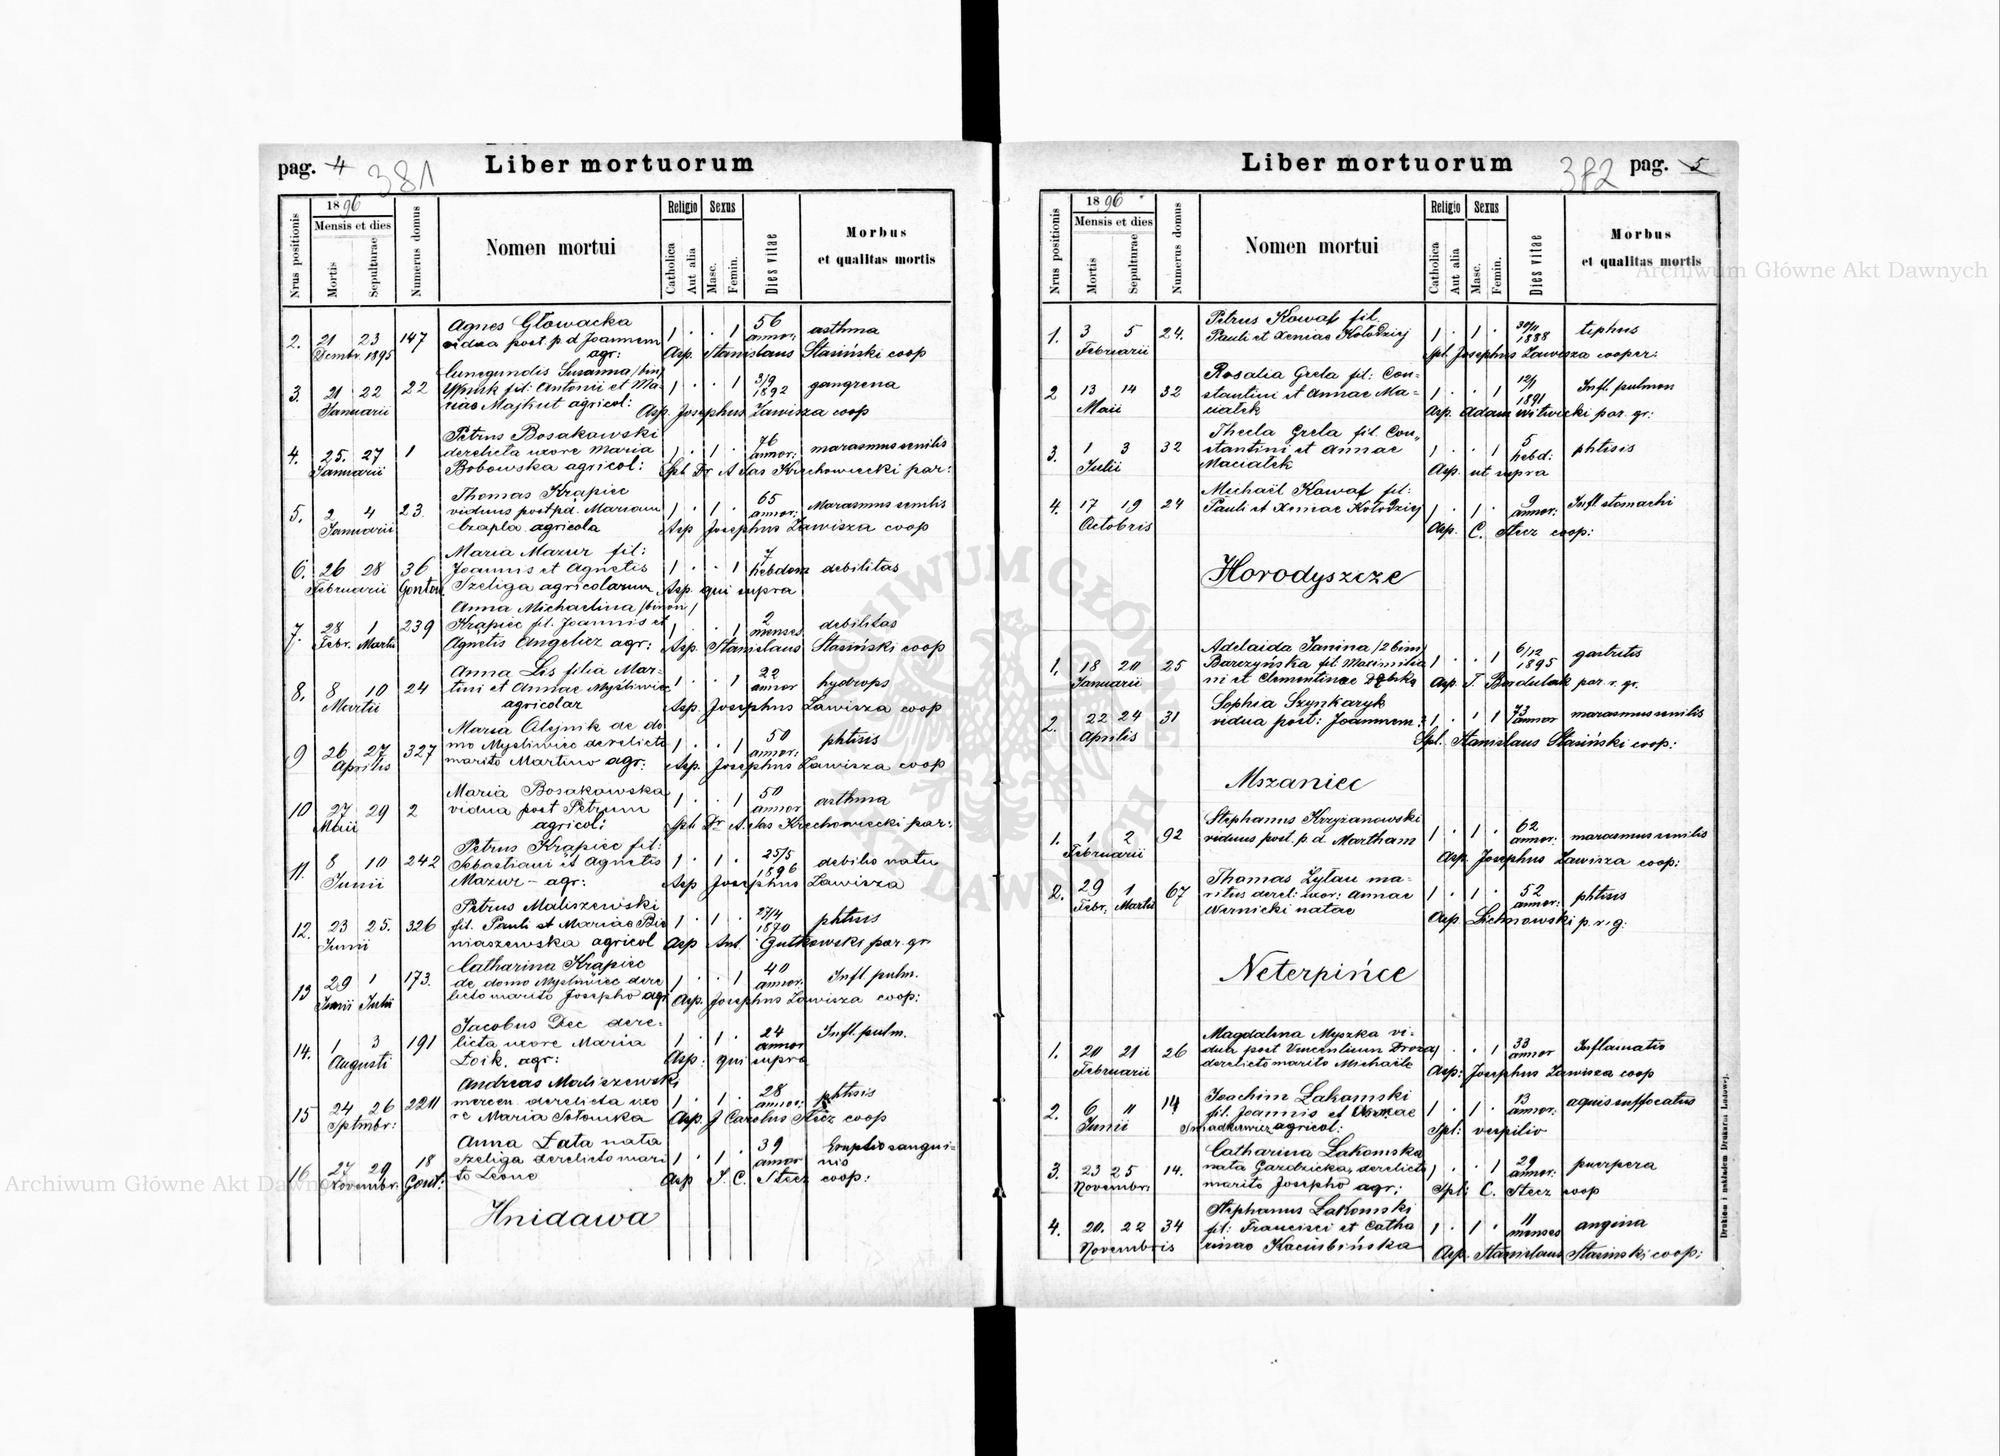 pag. 4 381 Liber mortuorum
Nrus positionis
1896
Mensis et dies
Mortis
Sepulturae
Numerus domus
Nomen mortui
Religio
Catholica
Aut alia
Sexus
Masc.
Femin.
Dies vitae
Morbus
et qualitas mortis
Agnes Głowacka 56
2. 21 23 147 vidua post p d Joannem 1 . . 1 annor: asthma
Dcmbr. 1895 agr: Asp. Stanislaus Stasiński coop
Cunegundis Susanna /bin/ 3/9
3. 21 22 22 fil: Antonii et Ma- 1 . . 1 1892 gangrena
Januarii riae Majkut agricol: Asp. Josephus Zawisza coop
Petrus Bosakowski 76
4. 25. 27 1 derelicta uxore Maria 1 . 1 . annor: marasmus senilis
Januarii Bobowska agricol: Spl Dr A Jas Krechowiecki par:
Thomas Krąpiec 65
5. 2 4 23. viduus post pd. Mariam 1 . 1 . annor: Marasmus senilis
Januarii Czapla agricola Asp Josephus Zawisza coop
Maria Mazur fil: 7
6. 26 28 36 Joannis et Agnetis 1 . . 1 hebdom debilitas
Februarii Gontow Szeliga agricolarum Asp. qui supra
Anna Michaelina /binon/ 2
7. 28 1 239 Krąpiec fil. Joannis et 1 . . 1 menses debilitas
Febr. Martii Agnetis Angelicz agr: Asp. Stanislaus Stasiński coop
Anna Lis filia Mar- 22
8. 8 10 24 tini et Annae Myśliwiec 1 . . 1 annor hydrops
Martii agricolar Asp. Josephus Zawisza coop
Maria Olejnik de do 50
9 26 27 327 mo Myśliwiec derelicto 1 . . 1 annor: phtisis
Aprilis marito Martino agr: Asp. Josephus Zawisza coop
Maria Bosakowska 50
10 27 29 2 vidua post Petrum 1 . . 1 annor asthma
Maii agricol: Spl. Dr A. Jas Krechowiecki par:
Petrus Krąpiec fil: 25/5
11. 8 10 242 Sebastiani et Agnetis 1 . 1 . 1896 debilis natu
Junii Mazur - agr: Asp Josephus Zawisza
Petrus Maliszewski 27/4
12. 23 25. 326 fil. Pauli et Mariae Bie 1 . 1 . 1870 phtisis
Junii niaszewska agricol Asp Ant. Gutkowski par. gr.
Catharina Krąpiec 40
13 29 1 173. de domo Myśliwiec dere 1 . . 1 annor. Infl. pulm.
Junii Julii licto marito Josepho agr Asp. Josephus Zawisza coop:
Jacobus Dec dere- 24
14. 1 3 191 licta uxore Maria 1 . 1 . annor Infl. pulm.
Augusti Łoik. agr: Asp: qui supra
Andreas Maliszewski 28
15 24 26 mercen. derelicta uxo 1 . 1 . annor: phtisis
Sptmbr: re Maria Sołowska Asp. J Carolus Stecz coop
Anna Łata nata 39 Eruptio sangui-
16 27 29 18 Szeliga derelicto mari 1 . 1 . annor nis
Novembr. Gont: to Leone Asp J. C. Stecz coop:
Hnidawa
Liber mortuorum 382 pag. 5
Nrus positionis
1896
Mensis et dies
Mortis
Sepulturae
Numerus domus
Nomen mortui
Religio
Catholica
Aut alia
Sexus
Masc.
Femin.
Dies vitae
Morbus
et qualitas mortis
Petrus Kowaf fil. 30/11
1. 3 5 24. Pauli et Xeniae Kołodziej 1 . 1 . 1888 tiphus
Februarii Spl. Josephus Zawisza cooper:
Rosalia Grela fil: Con- 12/1
2 13 14 32 stantini et Annae Ma- 1 . . 1 1891 Infl. pulmon
Maii ciałek Asp. Adam Witwicki par. gr:
Thecla Grela fil. Con„ 5
3. 1 3 32 stantini et Annae 1 . . 1 hebd: phtisis
Julii Maciałek Asp. ut supra
Michaël Kowaf fil: 9
4. 17 19 24 Pauli et Xeniae Kołodziej 1 . 1 . annor: Infl stomachi
Octobris Asp. C. Stecz coop:
Horodyszcze
Adelaida Janina /2 bin/ 6/12
1. 18 20 25 Barczyńska fil. Maximilia 1 . . 1 1895 gastritis
Januarii ni et Clementinae Dębska Asp. T. Bardulak par. r. gr.
Sophia Szynkaryk 73
2. 22 24 31 vidua post: Joannem 1 . . 1 annor marasmus senilis
Aprilis Spl. Stanislaus Stasiński coop:
Mszaniec
Stephanus Krzyżanowski 62
1. 1 2 92 viduus post. p. d. Martham 1 . 1 . annor: marasmus senilis
Februarii Asp. Josephus Zawisza coop:
Thomas Zylau ma- 52
2. 29 1 67 ritus derel: uxor: Annae 1 . 1 . annor: phtisis
Febr. Martii Wernicki natae Asp Lichnowski p. r. g:
Neterpińce
Magdalena Myszka vi- 33
1. 20 21 26 dua post Vincentium Drozd 1 . . 1 annor Inflamatio
Februarii derelicto marito Michaële Asp: Josephus Zawisza coop
Joachim Łakomski 13
2. 6 11 14 fil. Joannis et Annae 1 . 1 . annor: aquis suffocatus
Junii agricol: Spl: vespilio
Catharina Łakomska 29
3. 23 25 14. nata Gazdzicka, derelicto 1 . . 1 annor: puerpera
Novembr: marito Josepho agr; Spl: C. Stecz coop
Stephanus Łakomski 11
4. 20. 22 34 fil: Francisci et Catha 1 . 1 . menses angina
Novembris rinae Kaciubińska Asp. Stanislaus Stasinski coop:
Drukiem i nakładem Drukarni Ludowej.
Archiwum Główne Akt Dawnych
Archiwum Główne Akt Dawnych
ARCHIWUM GŁÓWNE AKT DAWNYCH